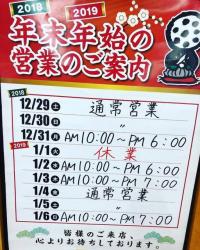 2018 2019
年末年始の
営業のご案内
2018
12/29土 通常営業
12/30日 〃
12/31月 AM10:00～PM6:00
2019
1/1火 休業
1/2水 AM10:00～PM6:00
1/3木 AM10:00～PM7:00
1/4金 通常営業
1/5土 〃
1/6日 AM10:00～PM7:00
皆様のご来店、
心よりお待ちしております。